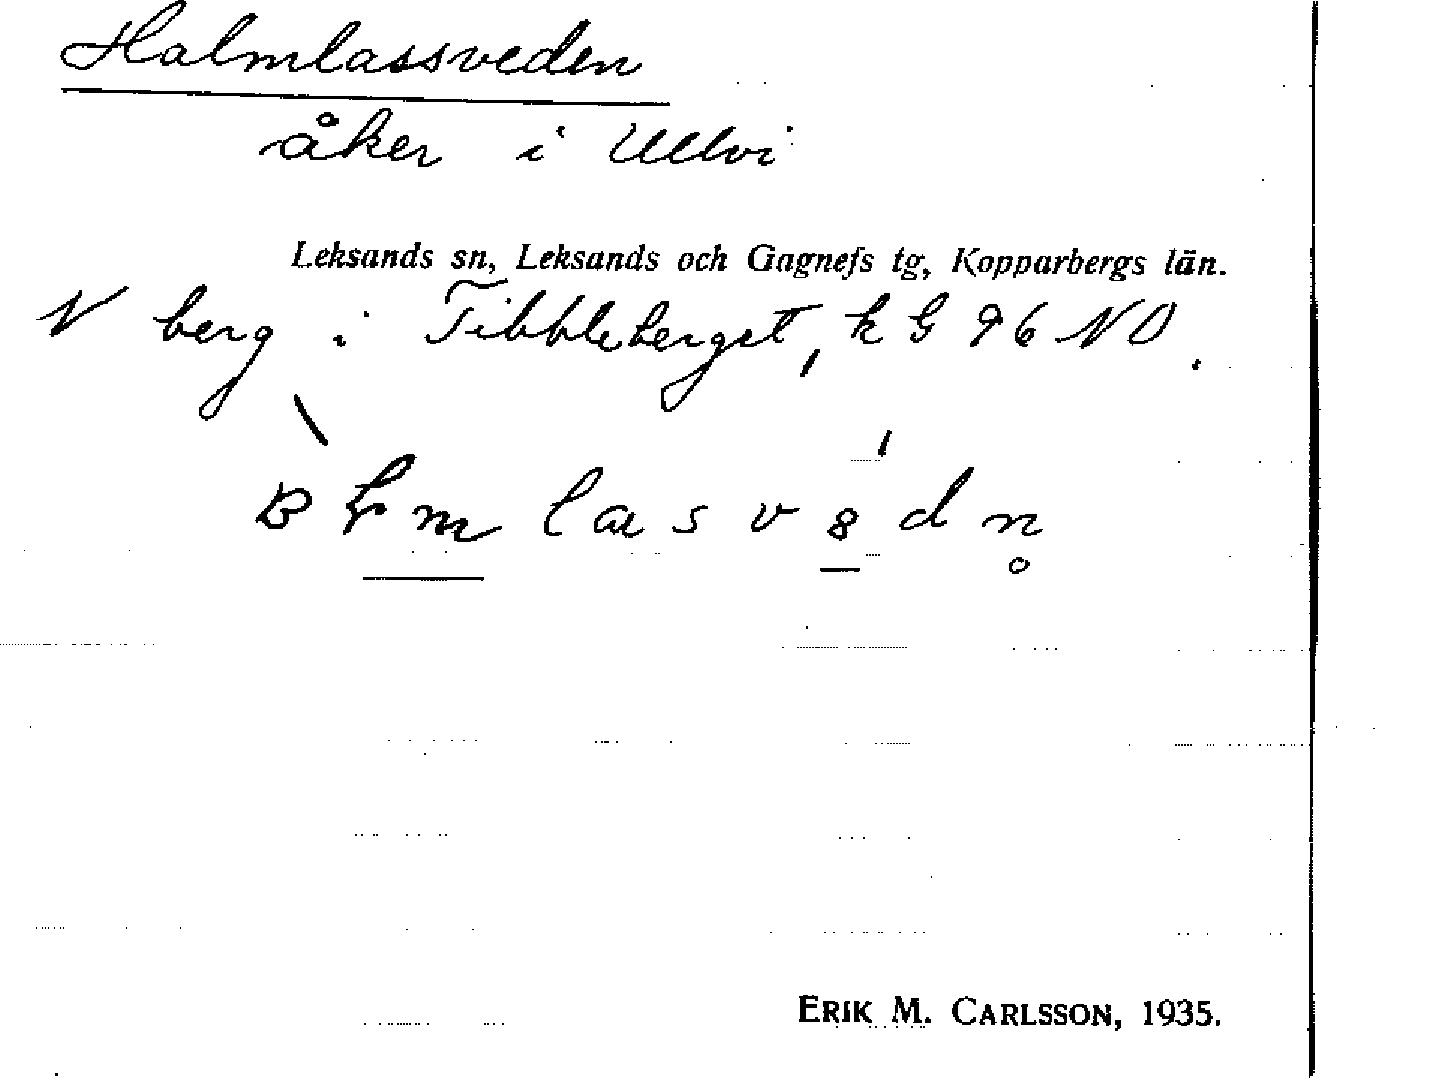 Halmlassveden
åker i Ullvi
Leksands sn, Leksands och Gagnefs tg, Kopparbergs län.
N berg i Tibbleberget, k G 96 NO.
ERIK M. CARLSSON, 1935.